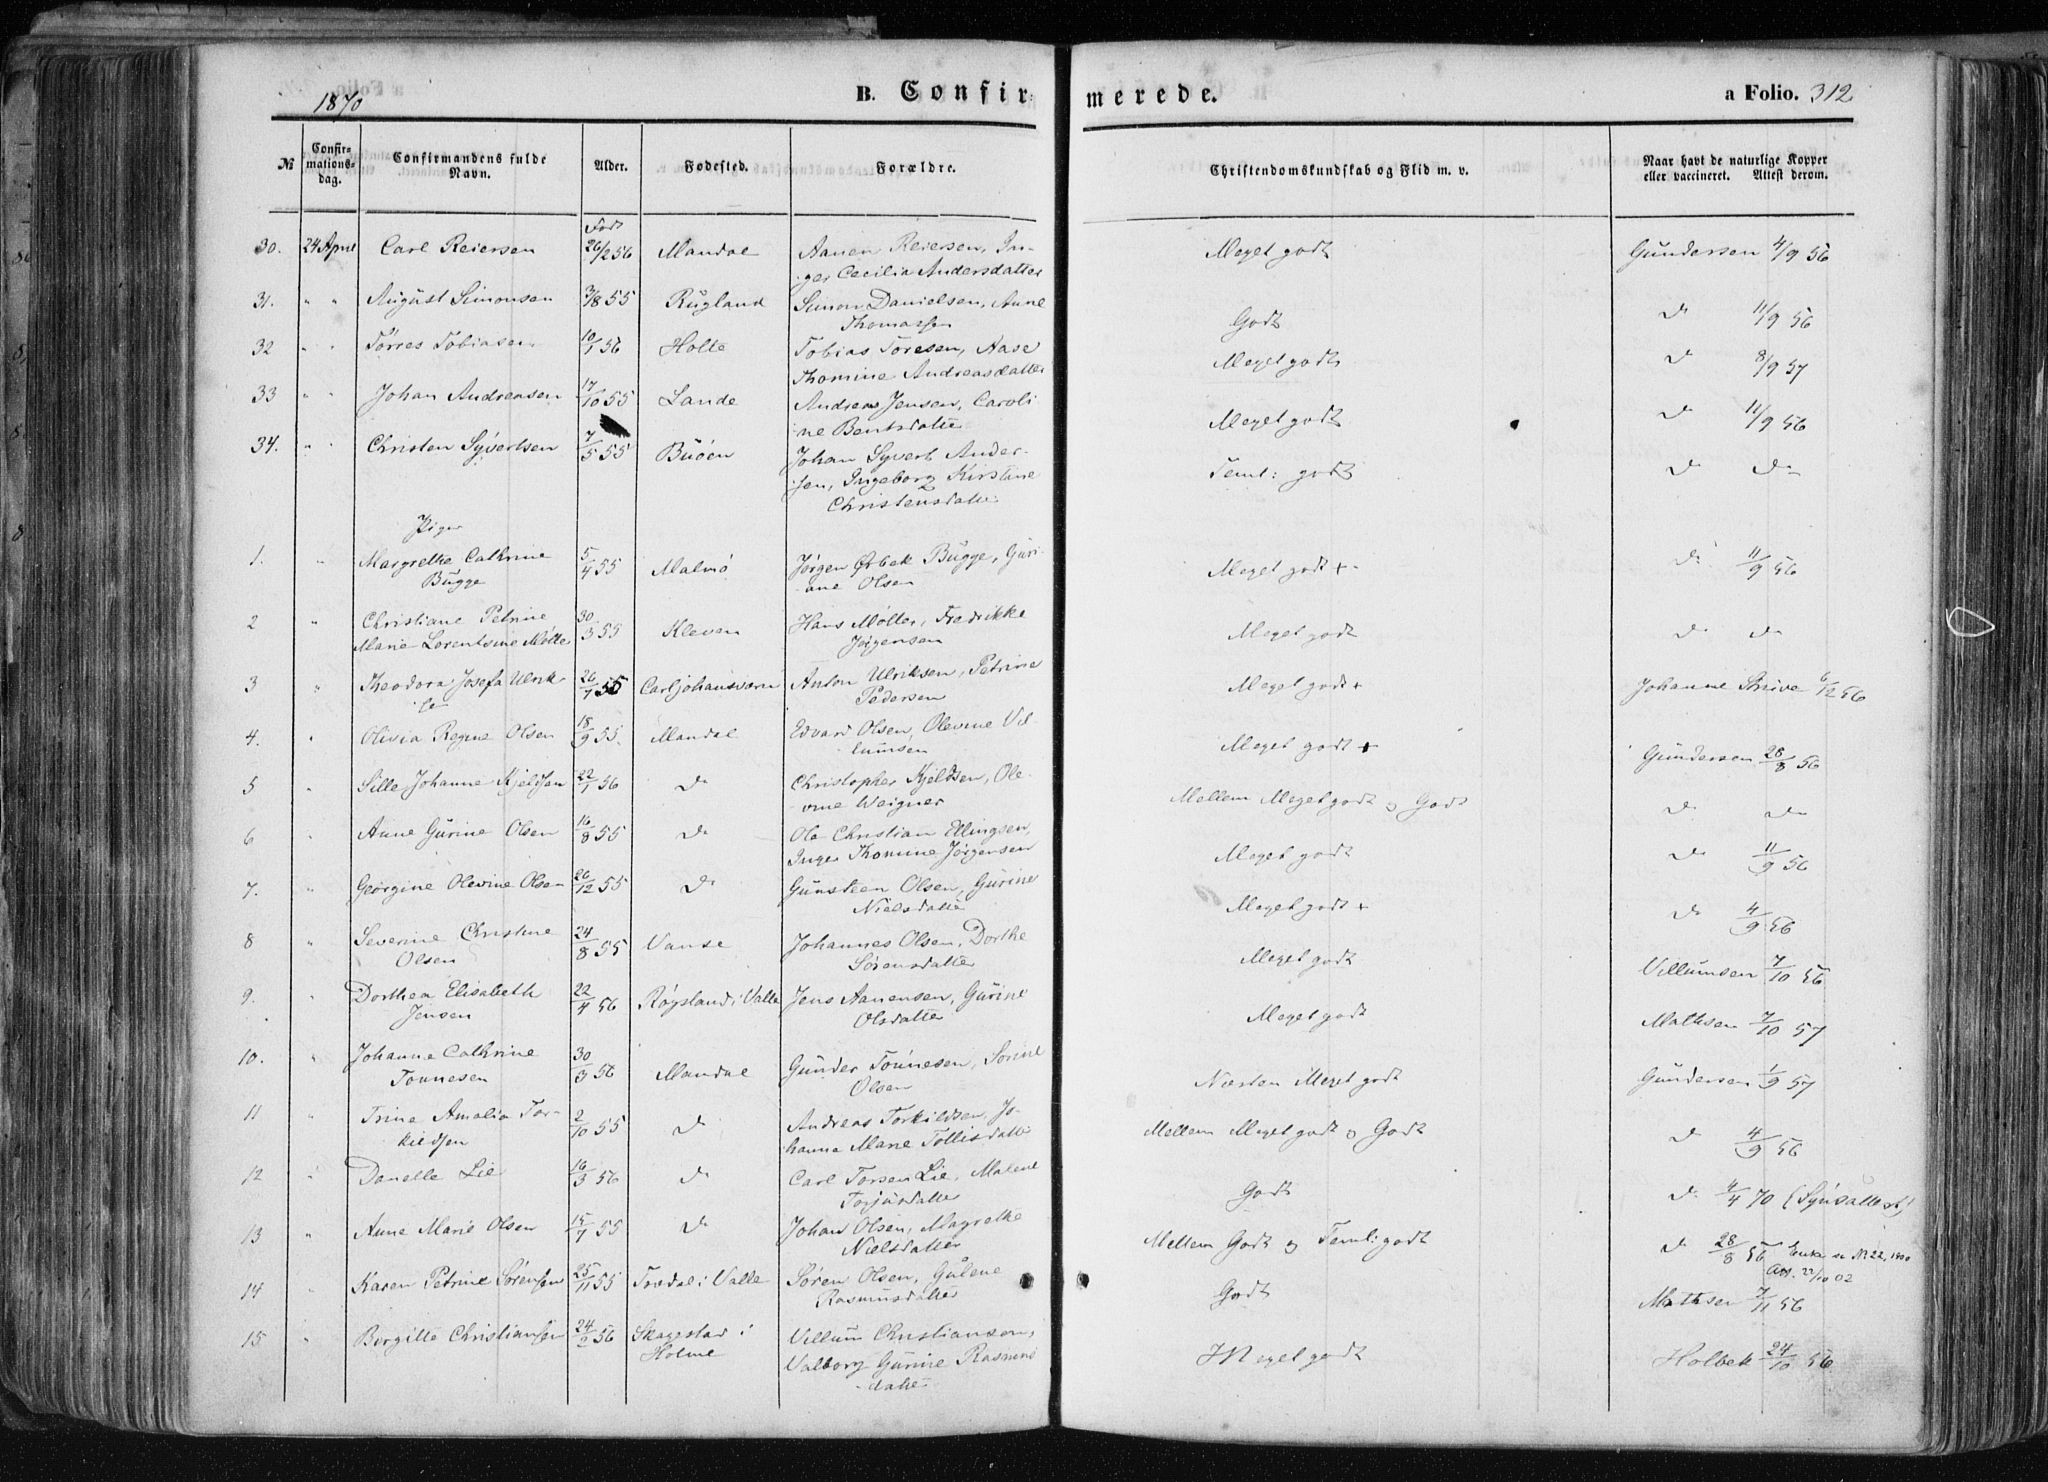 1870 B. Confirmerede. a Folio. 312
№ Confirmations-dag. Confirmandens fulde Navn. Alder. Fødested. Forældre. Christendomskundskab og Flid m. v. Naar havt de naturlige Kopper eller vaccineret. Attest derom.
Født
30. 24 April Carl Reiersen 26/2 56 Mandal Aanen Reiersen, In- Meget godt Gundersen 4/9 56
ger Cecilia Andersdatter
31. " " August Simonsen 3/8 55 Rugland Simon Danielsen, Anne Godt do 11/9 56
Thomassen
32 " " Torres Tobiasen 10/1 56 Holte Tobias Toresen, Aase Meget godt do 8/9 57
Thomine Andreasdatter
33 " " Johan Andreasen 17/10 55 Lande Andreas Jensen, Caroli Meget godt do 11/9 56
ne Bentsdatter
34. " " Christen Syvertsen 7/5 55 Buøen Johan Syvert Ander- Teml: godt do do
sen, Ingeborg Kirstine
Christensdatter
Piger
1. " Margrethe Cathrine 5/4 55 Malmø Jørgen Ørbek Bugge, Guri- Meget godt + do 11/9 56
Bugge ane Olsen
2 " Christiane Petrine 30/3 55 Kleven Hans Møller, Fredrikke Meget godt do do
Marie Lorentsine Møller Jørgensen
3 " Theodora Josefa Ulrik 26/1 55 Carljohansværn Anton Ulriksen, Petrine Meget godt + Johanne 6/12 56
sen Pedersen
4. " Olivia Regine Olsen 18/9 55 Mandal Edvard Olsen, Olevine Vil- Meget godt + Gundersen 28/8 56
lumsen
5 " Sille Johanne Kjeldsen 22/1 56 do Christopher Kjeldsen, Ole- Mellem Meget godt og Godt do do
vine Weigner
6 " Anne Gurine Olsen 16/8 55 do Ole Christian Ellingsen, Meget godt do 11/9 56
Inger Thomine Jørgensen
7. " Georgine Olevine Olsen 26/12 55 do Gunsteen Olsen, Gurine Meget godt + do 4/9 56
Nielsdatter
8 " Severine Christine 24/8 55 Vanse Johannes Olsen, Dorthe Meget godt Villumsen 7/10 56
Olsen Sørensdatter
9. " Dorthea Elisabeth 22/4 56 Røgsland i Valle Jens Aanensen, Gurine Meget godt Mathsen 7/10 57
Jensen Olsdatter
10. " Johanne Cathrine 30/3 56 Mandal Gunder Tønnesen, Sorine Næsten Meget godt Gundersen 1/9 57
Tønnesen Olsen
11 " Trine Amalia Tor- 2/10 55 do Andreas Torkildsen, Jo- Mellem Meget godt og Godt do 4/9 56
kildsen hanne Marie Tollisdatter
12 " Danelle Lie 16/3 56 do Carl Torsen Lie, Malene Godt do 4/4 70 (Synsattest)
Torjusdatter
13 " Anne Marie Olsen 15/7 55 do Johan Olsen, Magrethe Mellem Godt og Teml: godt do 28/8 56 Enke se Nr 22, 1900
Nielsdatter Att. 22/10 02
14 " Karen Petrine Sørensen 25/11 55 Trædal i Valle Søren Olsen, Gulene Godt Mathsen 7/11 56
Rasmusdatter
15 " Bergitte Christiansen 24/2 56 Skagestad i Villum Christiansen, Meget godt Holbek 24/10 56
Holme Valborg Gurine Rasmus
datter